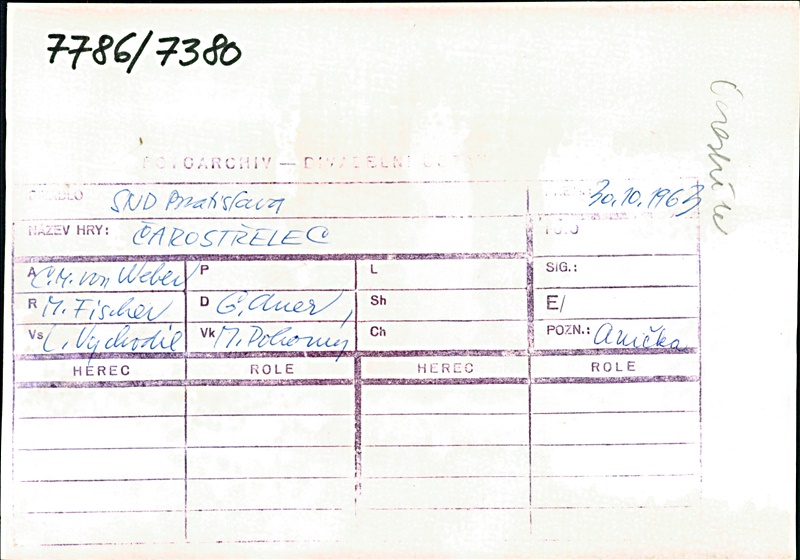 7786/7380
FOTOARCHIV — DIVADELNÍ ÚSTAV
DIVADLO SND Bratislava 30.10.1963
NÁZEV HRY: ČAROSTŘELEC
A C. M. von Weber P L SIG.:
R M. Fischer D G. Auer, Sh E/
Vs L. Vychodil Vk M. Pokorný Ch POZN.: Anička
HEREC ROLE HEREC ROLE